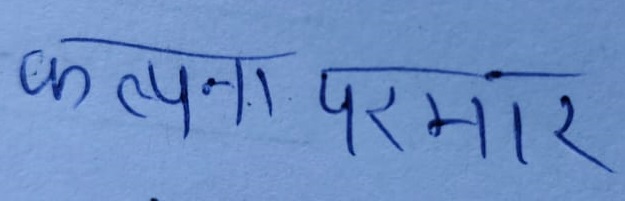 कल्पना परमार